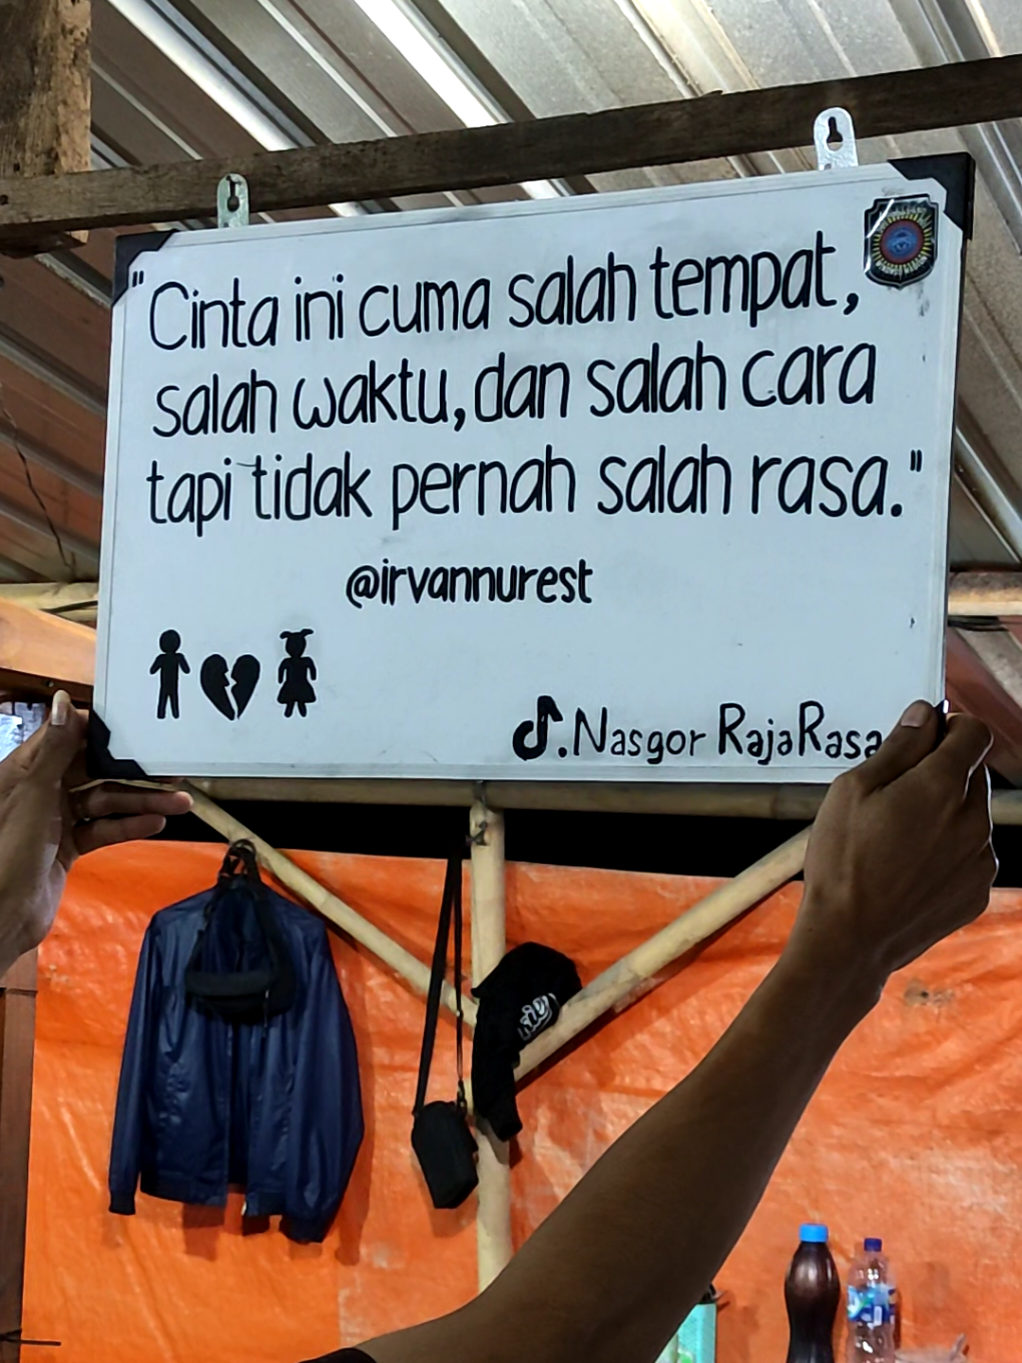 "Cinta ini cuma salah tempat,
salah waktu, dan salah cara
tapi tidak pernah salah rasa."
@irvannurest
.Nasgor RajaRasa